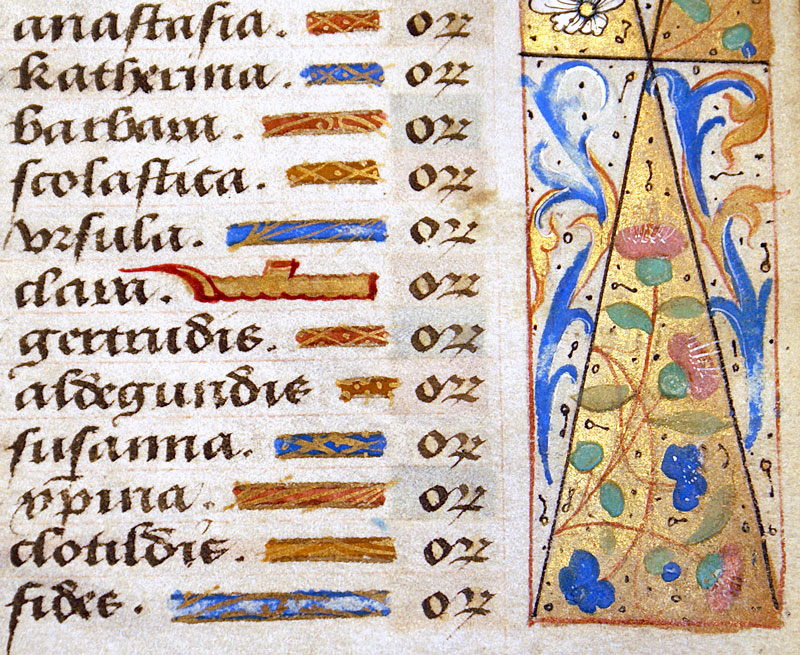 anastasia. or
katherina. or
barbara. or
scolastica. or
vrsula. or
clara. or
gertrudis. or
aldegundis or
susanna. or
xpina. or
clotildis. or
fides. or